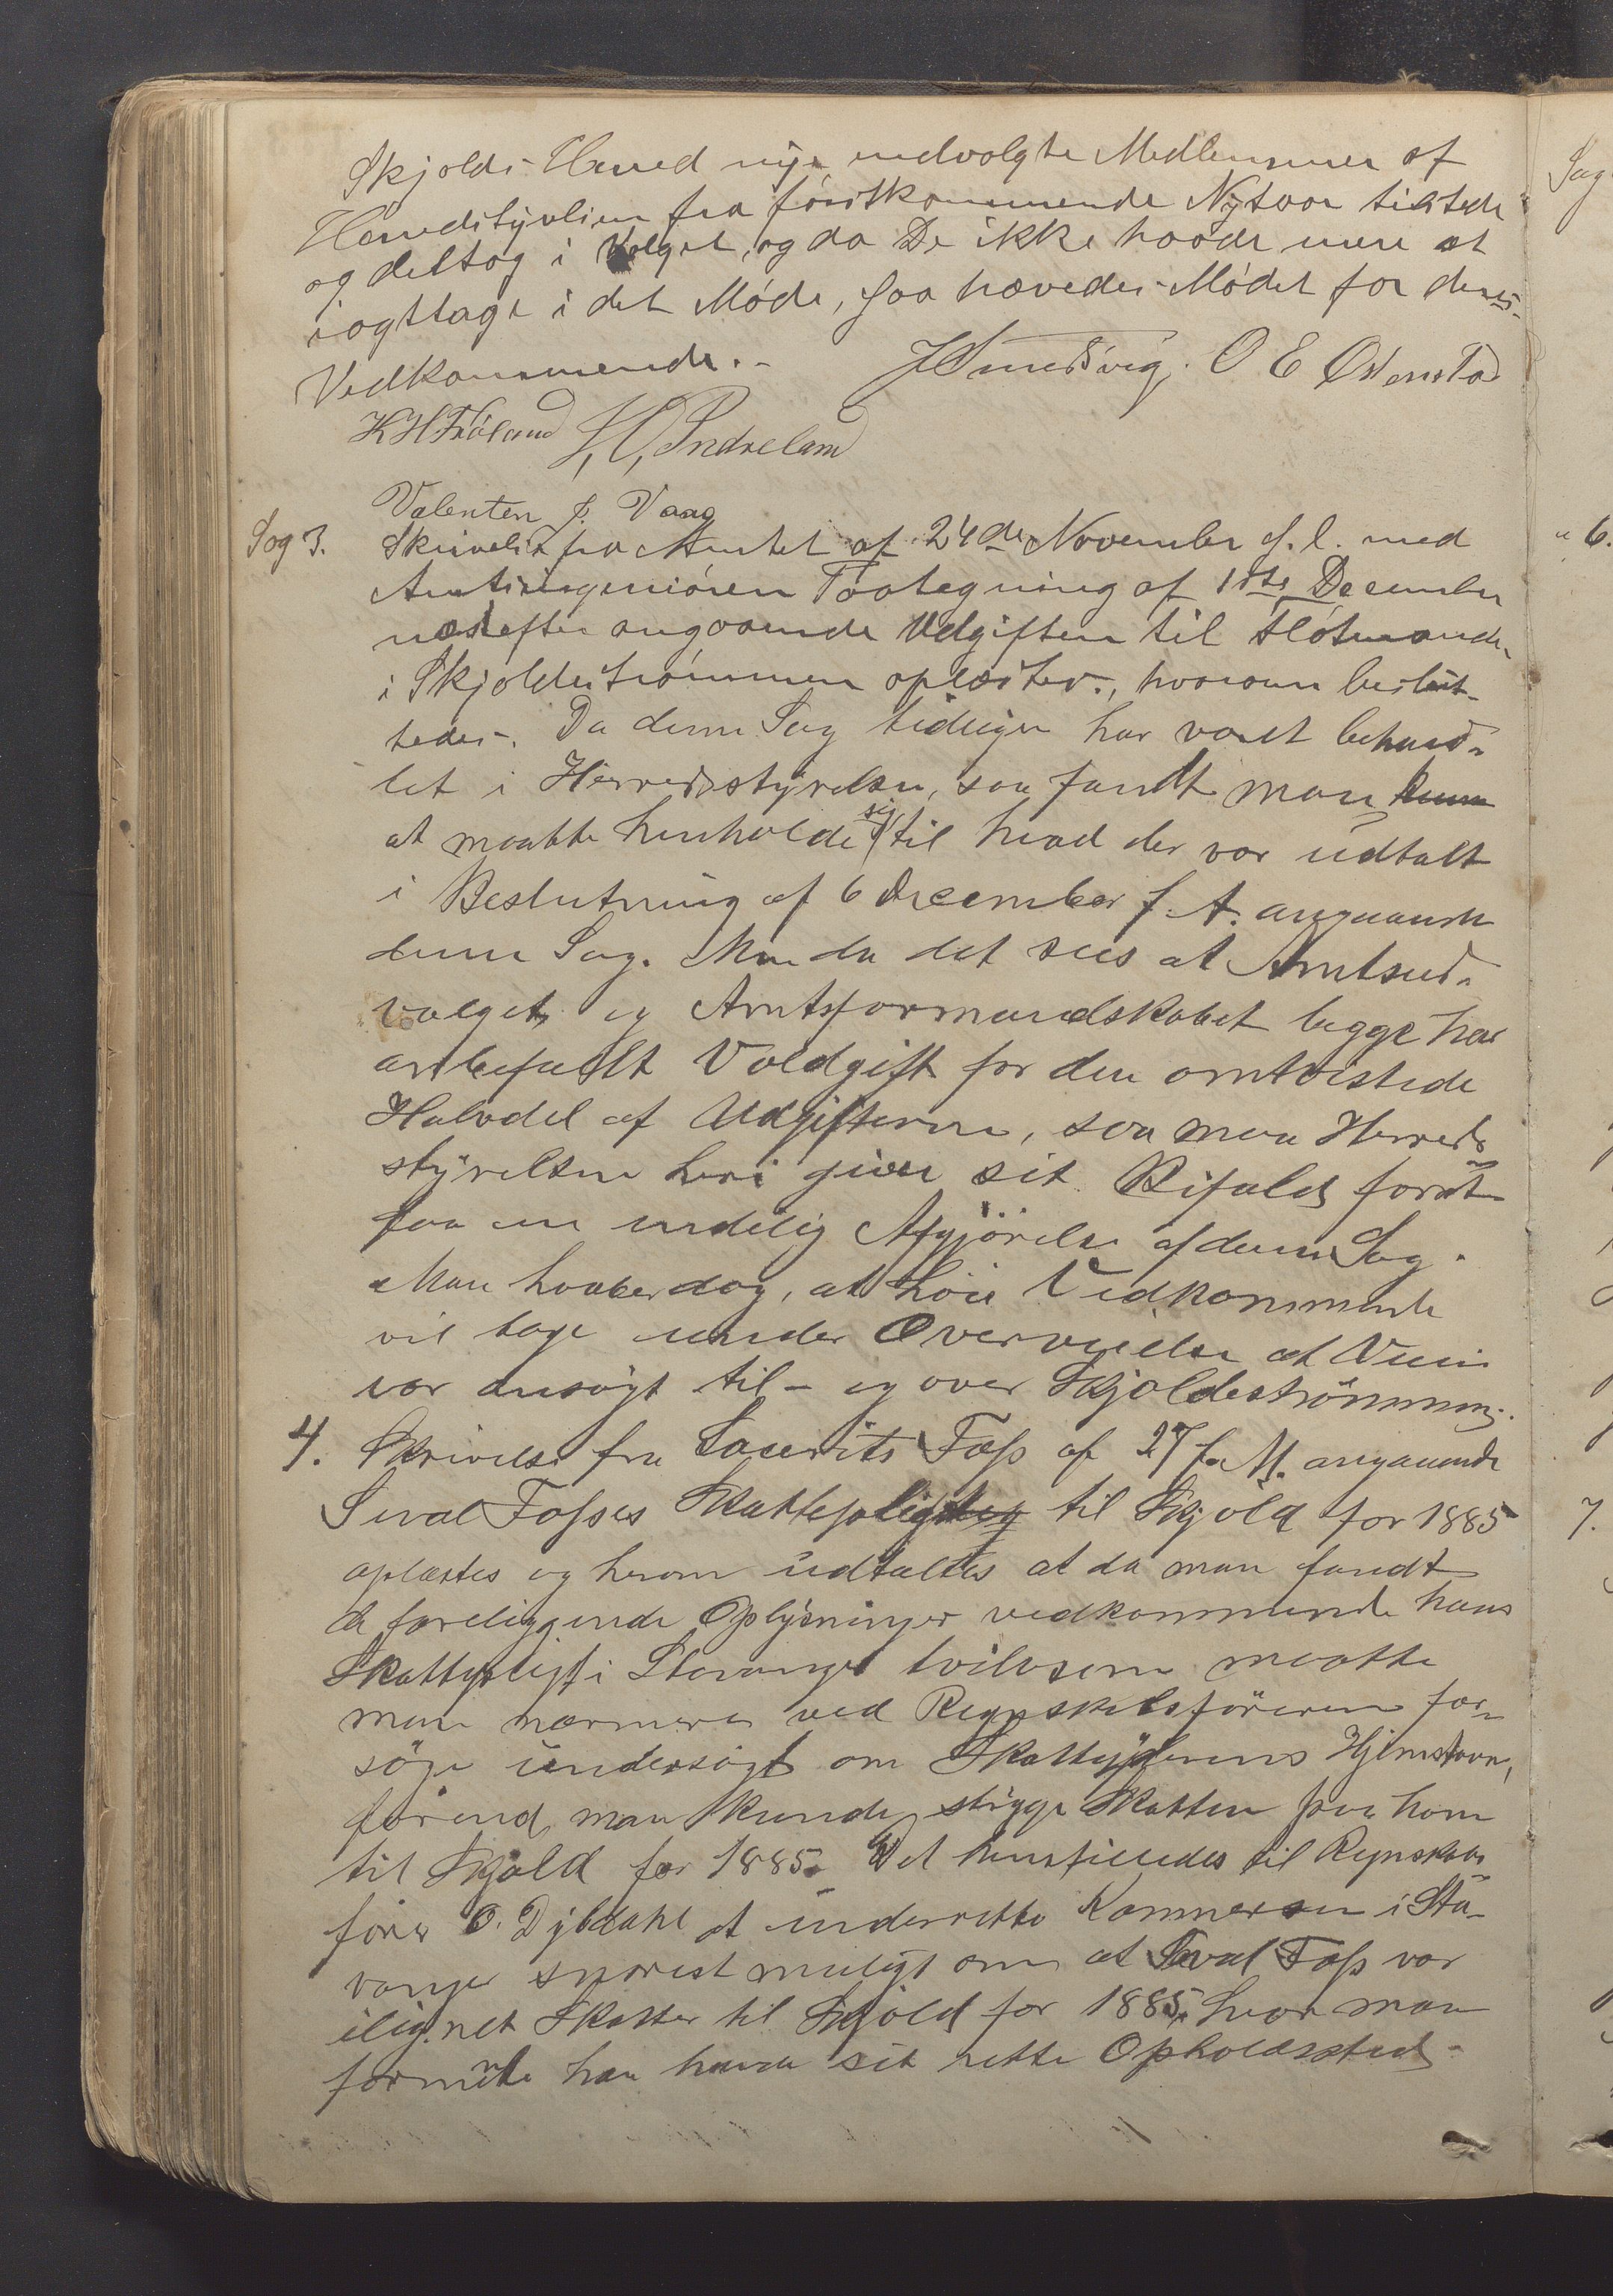 Skjolds Herred nye indvalgte Medlemmer af
Herredstyrelsen fra förstkommende Nytaar tilstede
og deltog i Valget, og da De ikke havde mere at
iagttage i det Möde, saa hævedes Mödet for deres
Vedkommende.-
H Smedsvig. O E
K H Fröland H, O, Indreland
Valenten J. Vaag
Sag 3. Skrivelse fra Amtet af 24de November d. l. med
Amtsingeniören Paategning af 1ste December
næstefter angaaende Udgiften til
i Skjoldeströmmen oplæstes., hvorom beslut-
tedes. Da denne Sag tidligere har været behand-
let i Herredsstyrelsen, saa fandt man kun
at maatte henholde sig til hvad der var udtalt
i Beslutning af 6 December f. A. angaaende
denne Sag. Men da det sees at Amtsud-
valget og Amtsformandskabet begge har
anbefallt Voldgift for den omtvistede
Halvdel af Udgifterne, saa maa Herreds
styrelsen heri give sit Bifald for at
faa en endelig Afgjörelse af denne Sag.
Man haaber dog, at höie Vedkommende
vil tage under Overveielse at Veien
var ansögt til - og over Skjoldeströmmen.
4. Skrivelse fra Laurits Foss af 27 f. M. angaaende
Sival Fosses Skattepligt til Skjold for 1885
oplæstes og herom udtaltes at da man fandt
de foreliggende Oplysninger vedkommende hans
Skattepligt i Stavanger tvilsom maatte
man nærmere ved Regnskabsföreren for-
söge undersögt om Skatteyderens Hjemstavn,
förend man kunde stryge Skatten paa ham
til Skjold for 1885. Det henstilledes til Regnskabs
förer O. Dybdahl at underrette Kæmneren i Sta-
vanger snarest muligt om at Sival Foss var
ilignet Skatter til Skjold for 1885, hvor man
formente han havde sit rette Opholdssted.
Sag
" 6.
7.